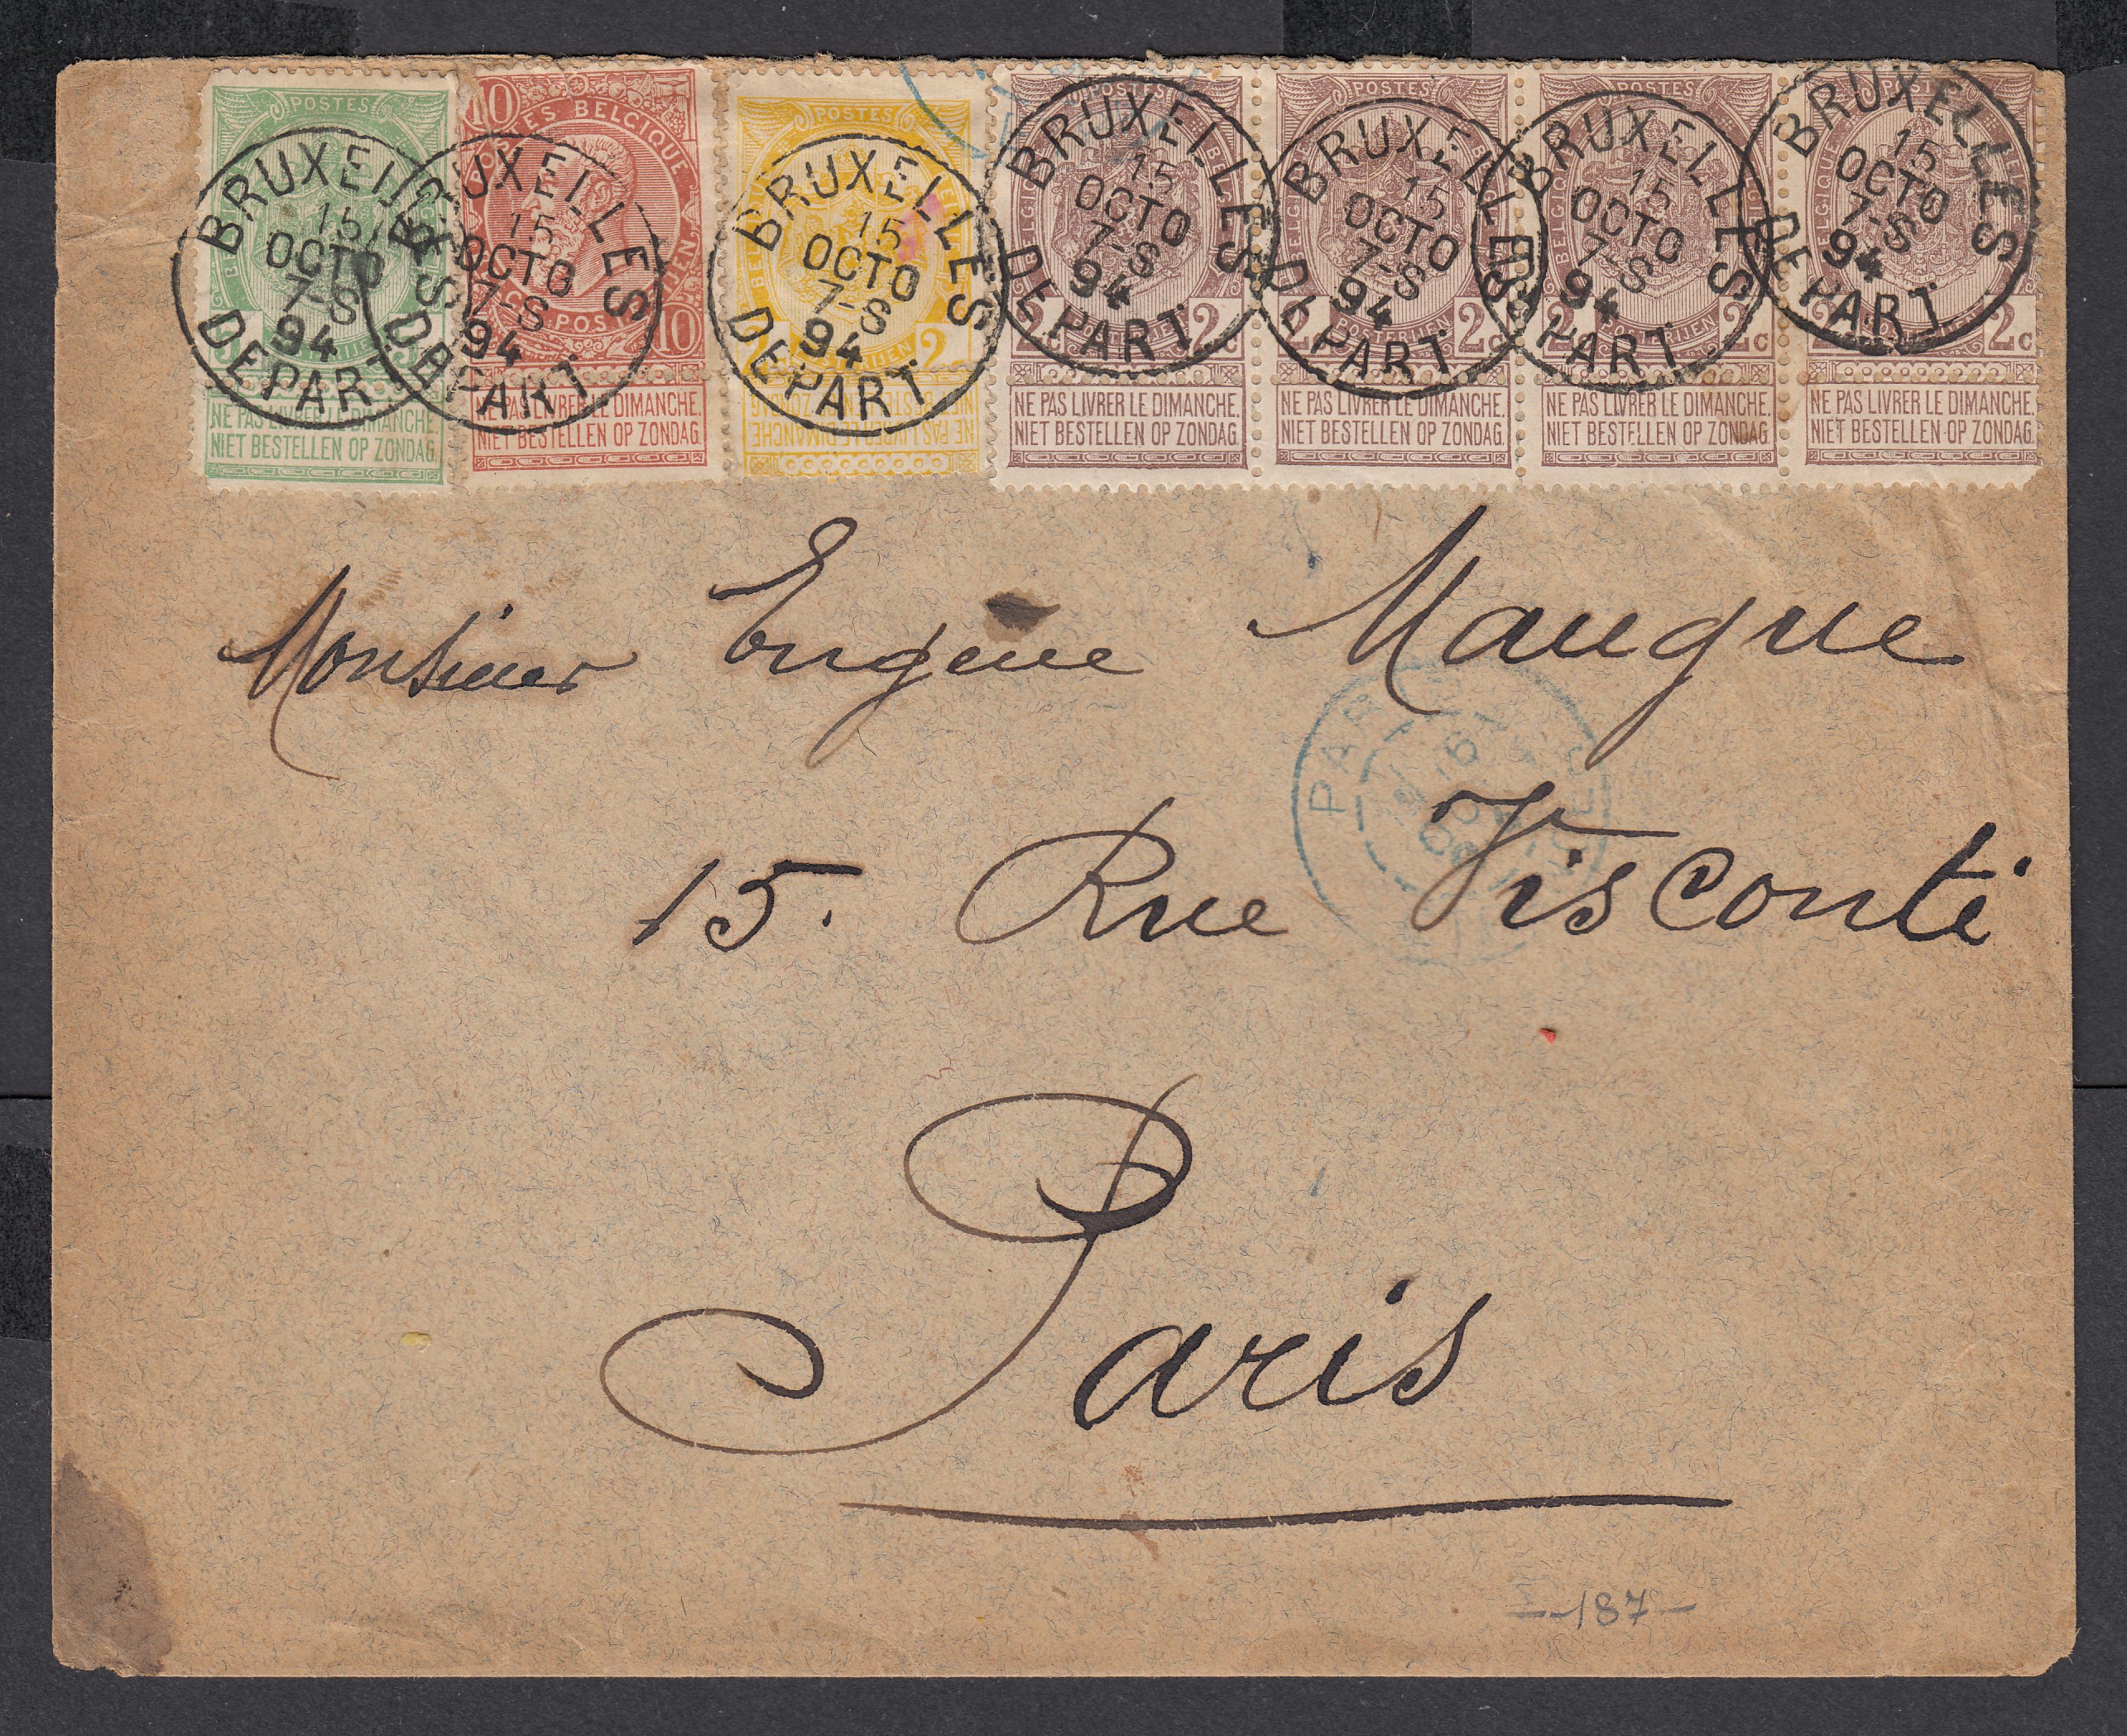 POSTES
10 POSTES BELGIQUE
POSTES
POSTES
POSTES
POSTES
POSTES
BRUXELLES
15
OCTO
7-S
94
DEPART
BRUXELLES
15
OCTO
7-S
94
DEPART
BRUXELLES
15
OCTO
7-S
94
DEPART
BRUXELLES
15
OCTO
7-S
94
DEPART
BRUXELLES
15
OCTO
7-S
94
DEPART
BRUXELLES
15
OCTO
7-S
94
DEPART
BRUXELLES
15
OCTO
7-S
94
DEPART
10
2c
2c
2c
2c
NE PAS LIVRER LE DIMANCHE.
NIET BESTELLEN OP ZONDAG.
NE PAS LIVRER LE DIMANCHE.
NIET BESTELLEN OP ZONDAG.
NE PAS LIVRER LE DIMANCHE
NIET BESTELLEN OP ZONDAG
NE PAS LIVRER LE DIMANCHE.
NIET BESTELLEN OP ZONDAG.
NE PAS LIVRER LE DIMANCHE.
NIET BESTELLEN OP ZONDAG.
NE PAS LIVRER LE DIMANCHE.
NIET BESTELLEN OP ZONDAG
NE PAS LIVRER LE DIMANCHE.
NIET BESTELLEN OP ZONDAG.
Monsieur Eugène Maugue
15. Rue Visconti
Paris
PARIS
16
OCT
--187-